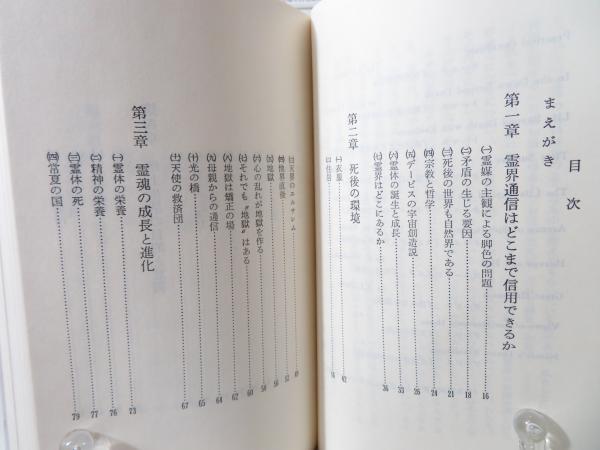 目次
まえがき
第一章 霊界通信はどこまで信用できるか
㈠霊媒の主観による脚色の問題 16
㈡矛盾の生じる要因 18
㈢死後の世界も自然界である 21
㈣宗教と哲学 24
㈤デービスの宇宙創造説 26
㈥霊体の誕生と成長 33
㈦霊界はどこにあるか 36
第二章 死後の環境
㈠衣服 42
㈡住居
㈦それでも〝地獄〟はある 60
㈧地獄は矯正の場 62
㈨母親からの通信 64
㈩光の橋 65
㈩天使の救済団 67
㈤地獄
㈥心の乱れが地獄を作る
第三章 霊魂の成長と進化 73
㈠霊体の栄養 76
㈡精神の栄養 77
㈢霊体の死 79
㈣常夏の国